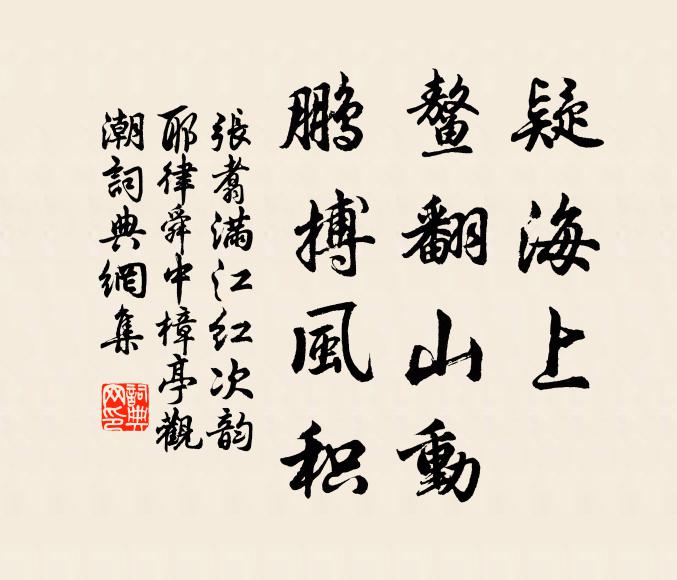 疑海上
鳌翻山動
鹏搏風积
張翥滿江红次韵
耶律舜中樟亭觀
潮詞典網集
詞典
网印